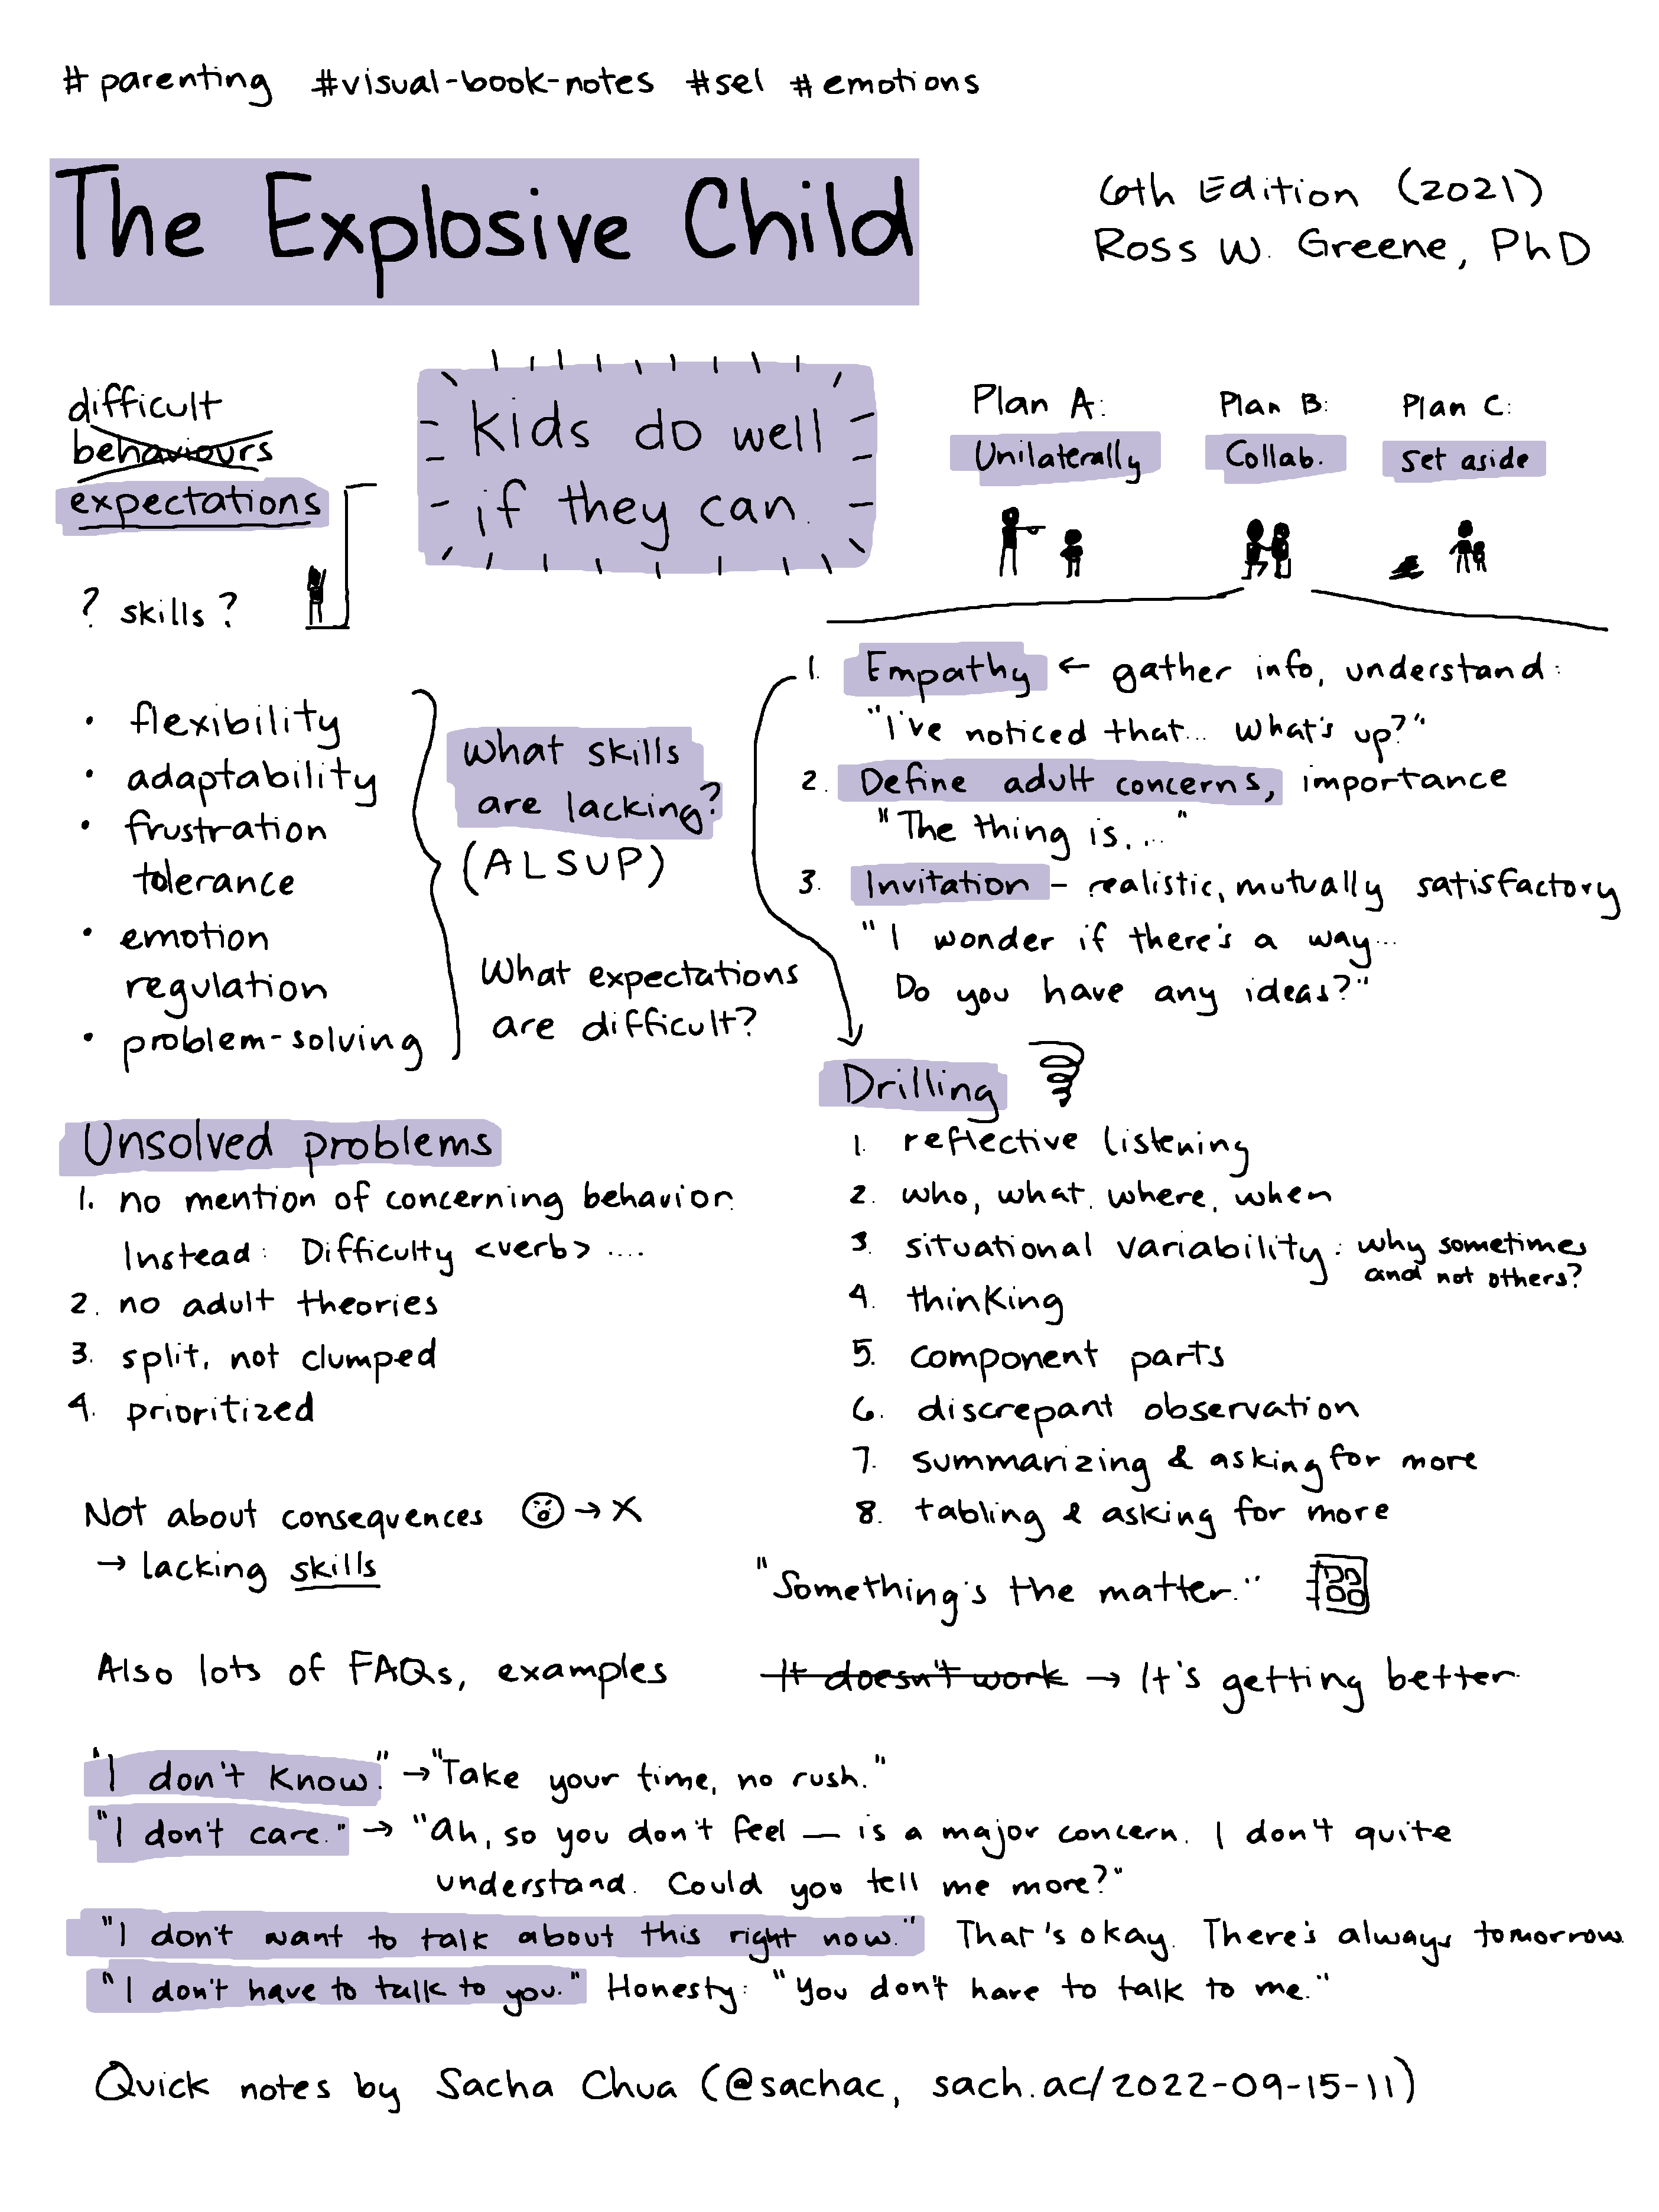 #parenting #visual-book-notes #sel #emotions
The Explosive Child
6th Edition (2021)
Ross W. Greene, PhD
difficult
behaviours
expectations
? skills?
Kids do well
if they can.
Plan A:
Unilaterally
Plan B:
Collab.
Plan C:
Set aside
• flexibility
• adaptability
• frustration
tolerance
• emotion
regulation
• problem-solving
What skills
are lacking?
(ALSUP)
What expectations
are difficult?
1. Empathy ← gather info, understand:
"I've noticed that... What's up?"
2. Define adult concerns, importance
"The thing is..."
3. Invitation - realistic, mutually satisfactory
"I wonder if there's a way...
Do you have any ideas?"
Unsolved problems
1. no mention of concerning behavior.
Instead: Difficulty <verb> ....
2. no adult theories
3. split, not clumped
4. prioritized
Drilling
1. reflective listening
2. who, what, where, when
3. situational variability: why sometimes
and not others?
4. thinking
5. component parts
6. discrepant observation
7. summarizing & asking for more
8. tabling & asking for more
Not about consequences → X
→ lacking skills
"Something's the matter."
Also lots of FAQs, examples
It doesn't work → It's getting better.
"I don't know." → "Take your time, no rush."
"I don't care." → "Ah, so you don't feel — is a major concern. I don't quite
understand. Could you tell me more?"
"I don't want to talk about this right now." That's okay. There's always tomorrow.
"I don't have to talk to you." Honesty: "You don't have to talk to me."
Quick notes by Sacha Chua (@sachac, sach.ac/2022-09-15-11)